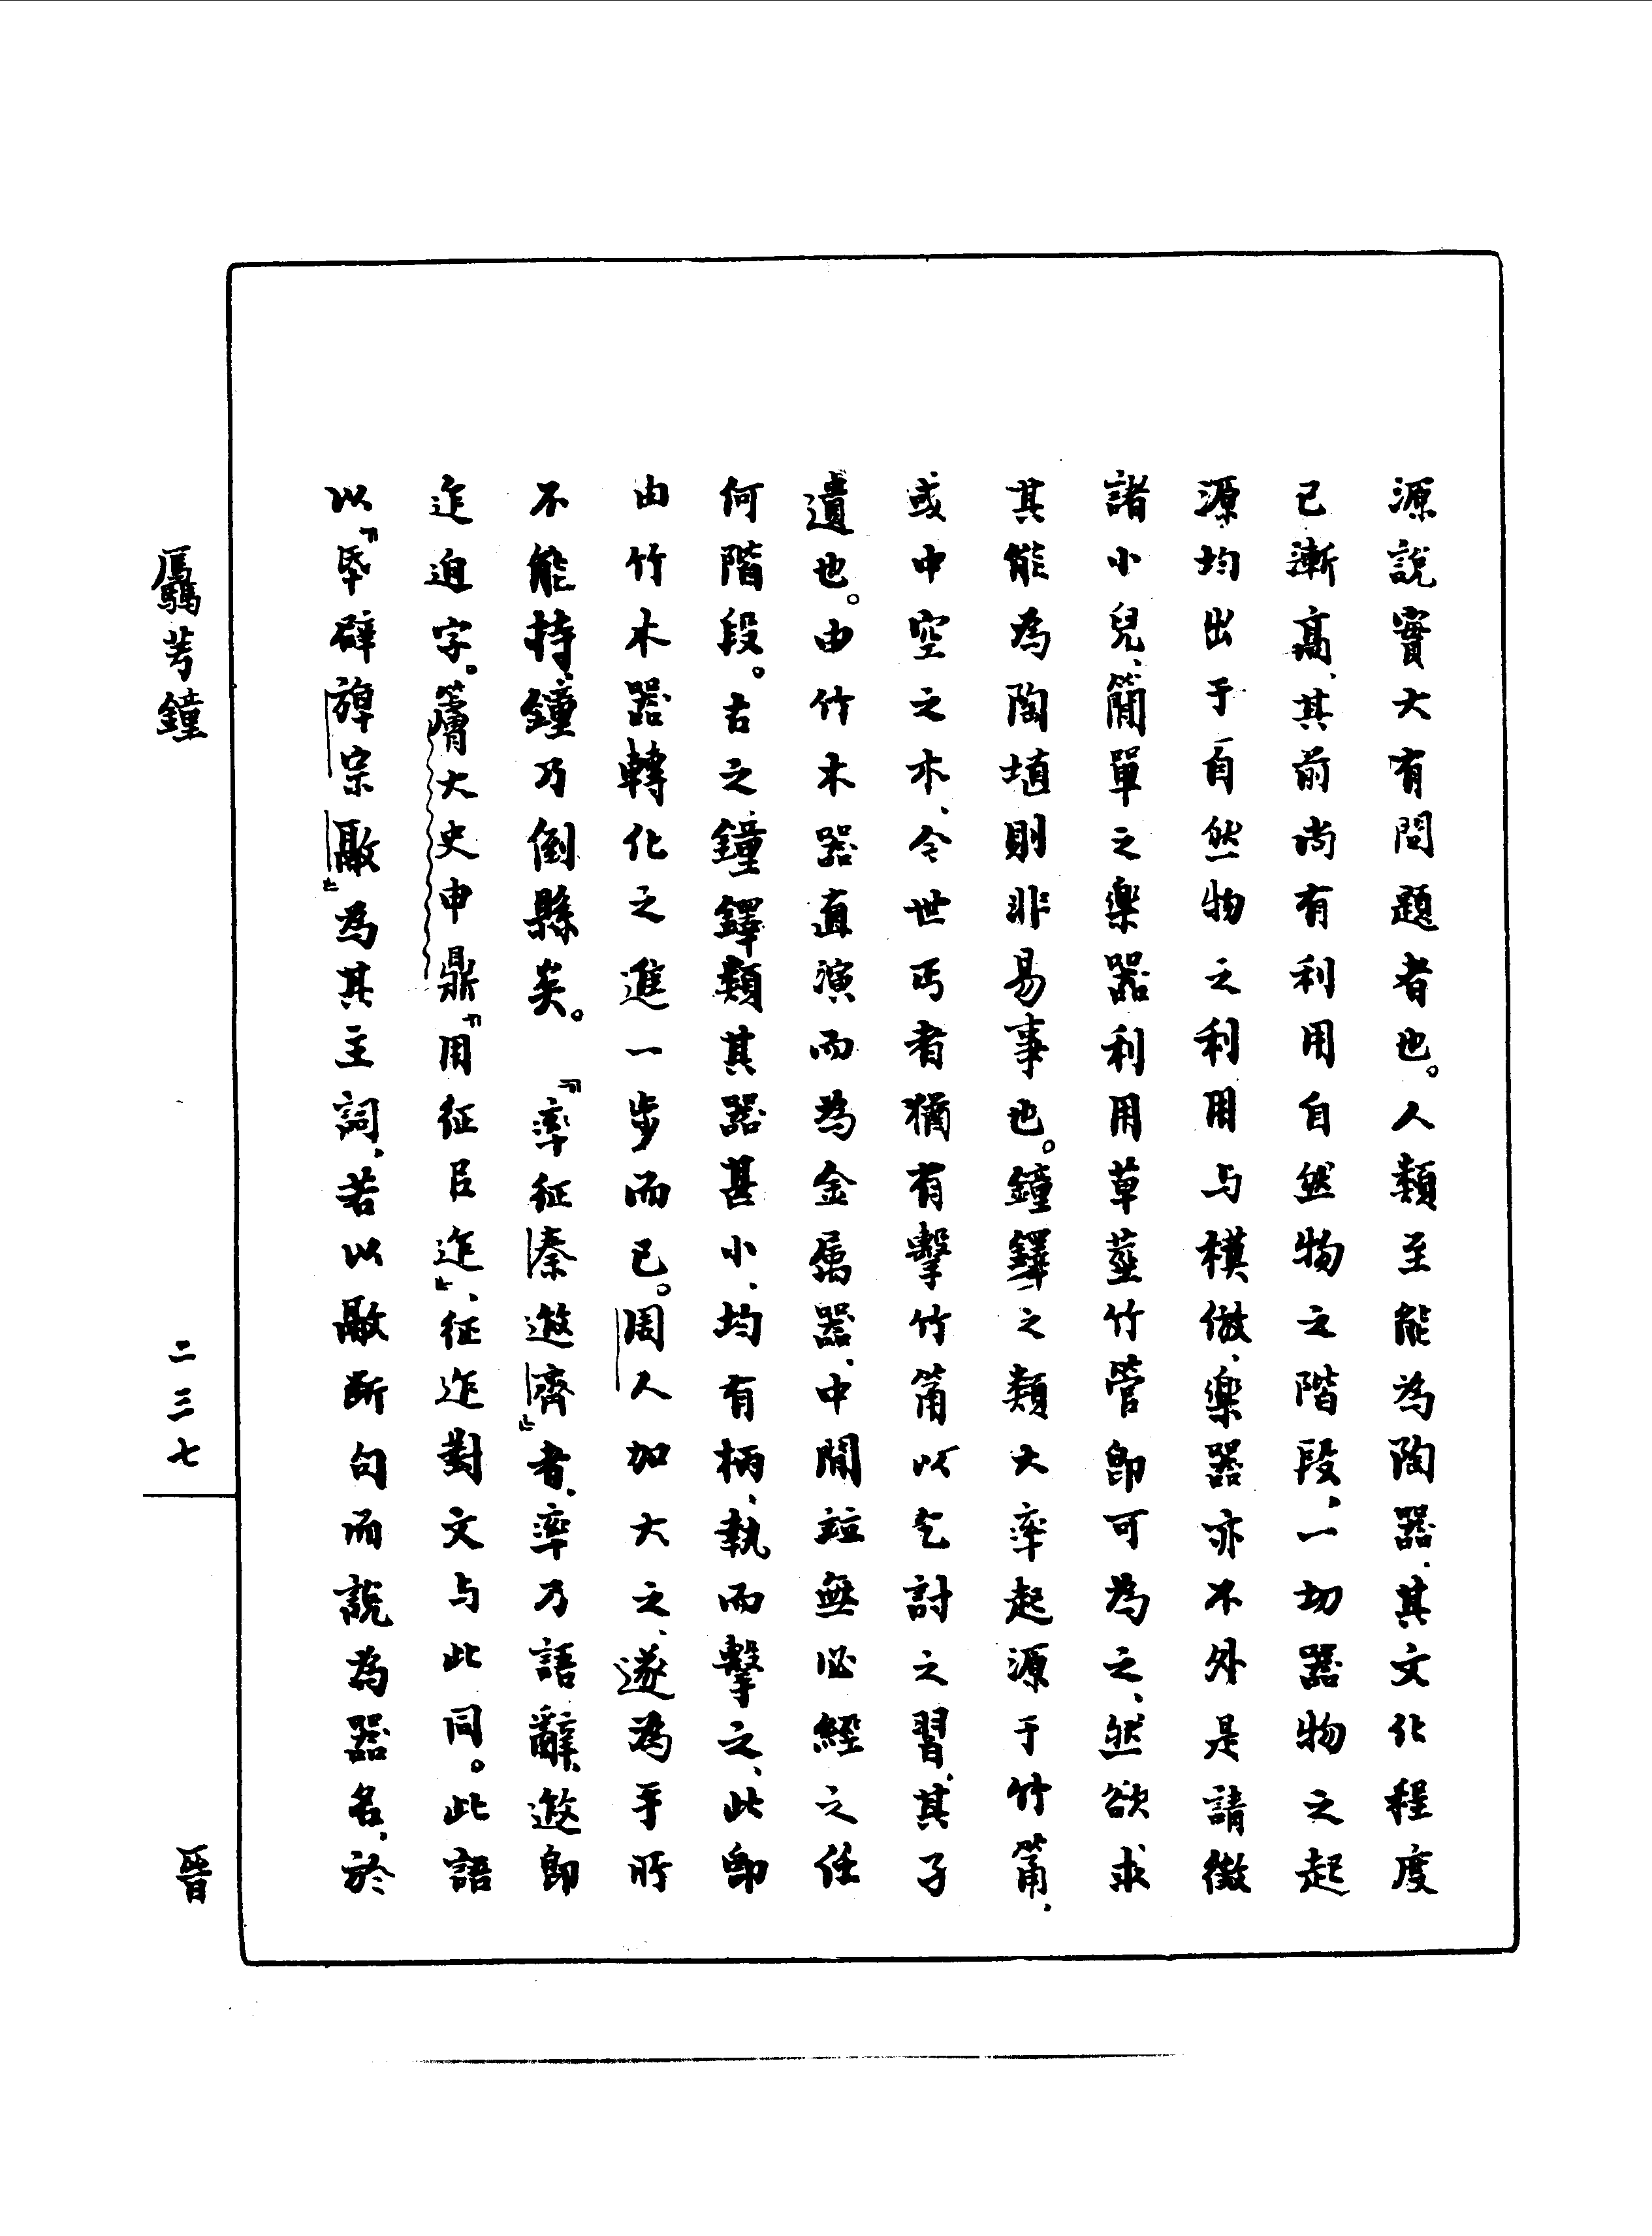 源說實大有問題者也。人類至能為陶器、其文化程度
已漸高、其前尚有利用自然物之階段、一切器物之起
源均出于自然物之利用与模倣、樂器亦不外是、請徵
諸小兒、簡單之樂器利用草莖竹管即可為之、然欲求
其能為陶埴則非易事也。鐘鐸之類大率起源于竹筩、
或中空之木、今世丐者猶有擊竹筩以乞討之習、其孑
遺也。由竹木器直演而為金属器、中間竝無必經之任
何階段。古之鐘鐸類其器甚小、均有柄、執而擊之、此即
由竹木器轉化之進一步而已。周人加大之、遂為手所
不能持、鐘乃倒縣矣。『率征秦遬齊』者、率乃語辭、遬即
迮迫字。大史申鼎『用征㠯迮』、征迮對文与此同。此語
以『氒辟旗宗敺』為其主詞、若以敺斷句而說為器名、於
芳鐘
二三七
晉